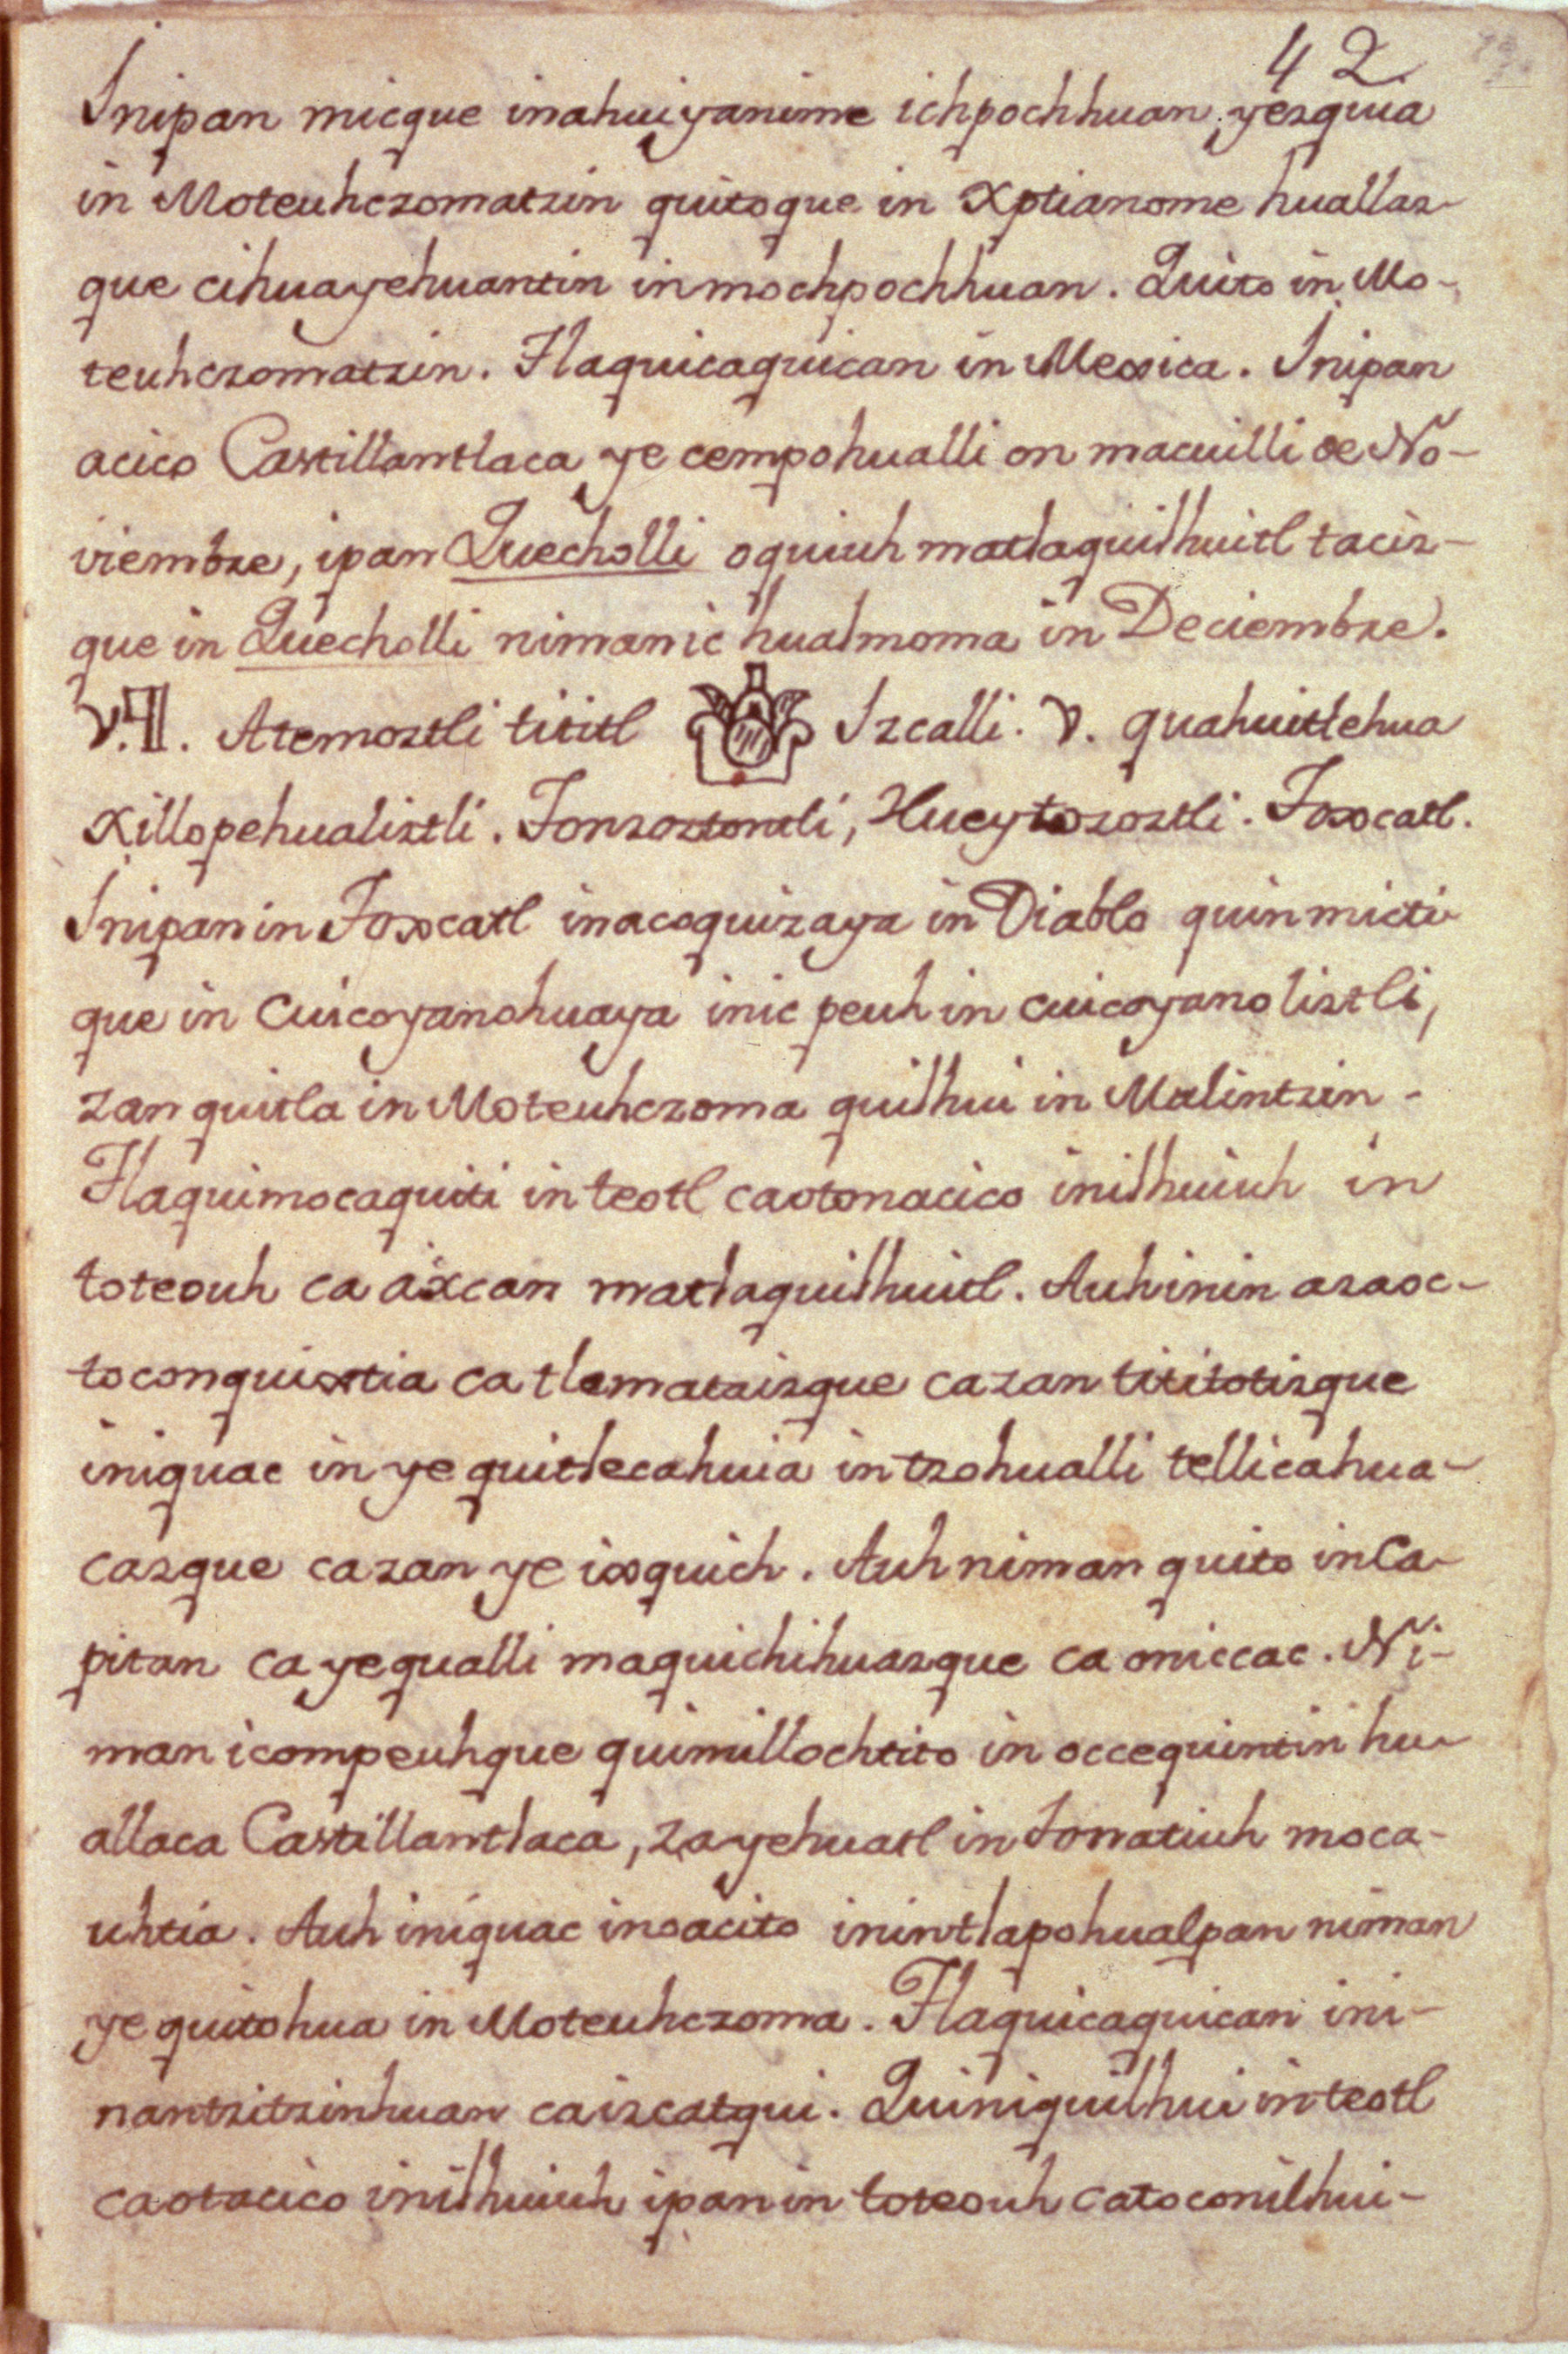 42
Inipan micque inahuiyanime ichpochhuan, yezquia
in Moteuhczomatzin quitoque in Xptianome huallaz-
que cihuayehuantin inmochpochhuan. Quito in Mo-
teuhczomatzin. Tlaquicaquican in Mexica. Inipan
acico Castillantlaca ye cempohualli on macuilli de No-
viembre, ipan Quecholli oquiuh matlaquilhuitl taciz-
que in Quecholli nimanic hualmoma in Deciembre.
Atemoztli tititl Izcalli. V. quahuitlehua
Xillopehualiztli. Tonzoztontli, Hueytozoztli. Toxcatl.
Inipanin Toxcatl inacoquizaya in Diablo quinmicti-
que in cuicoyanohuaya inic peuh in cuicoyanoliztli,
zan quitla in Moteuhczoma quilhui in Malintzin-
Tlaquimocaquiti in teotl caotonacico inilhuiuh in
toteouh ca axcan matlaquilhuitl. Auhinin azaoc-
toconquixtia ca tlamatazisque cazan titititotizque
iniquac in ye quitlecahuia in tzohualli tellicahua-
cazque cazan ye ixquich. Auh niman quito inCa-
pitan ca yequalli maquichihuazque ca oniccac. Ni-
man icompeuhque quimillochtito in occequintin hu-
allaca Castillantlaca, zayehuatl in tonatiuh moca-
uhtia. Auh iniquac inoacito inintlapohualpan niman
ye quitohua in Moteuhczoma. Tlaquicaquican ini-
nantzitzinhuan caizcatqui. Quiniquilhui in teotl
caotacico inilhuiuh ipanin toteouh catoconilhui-